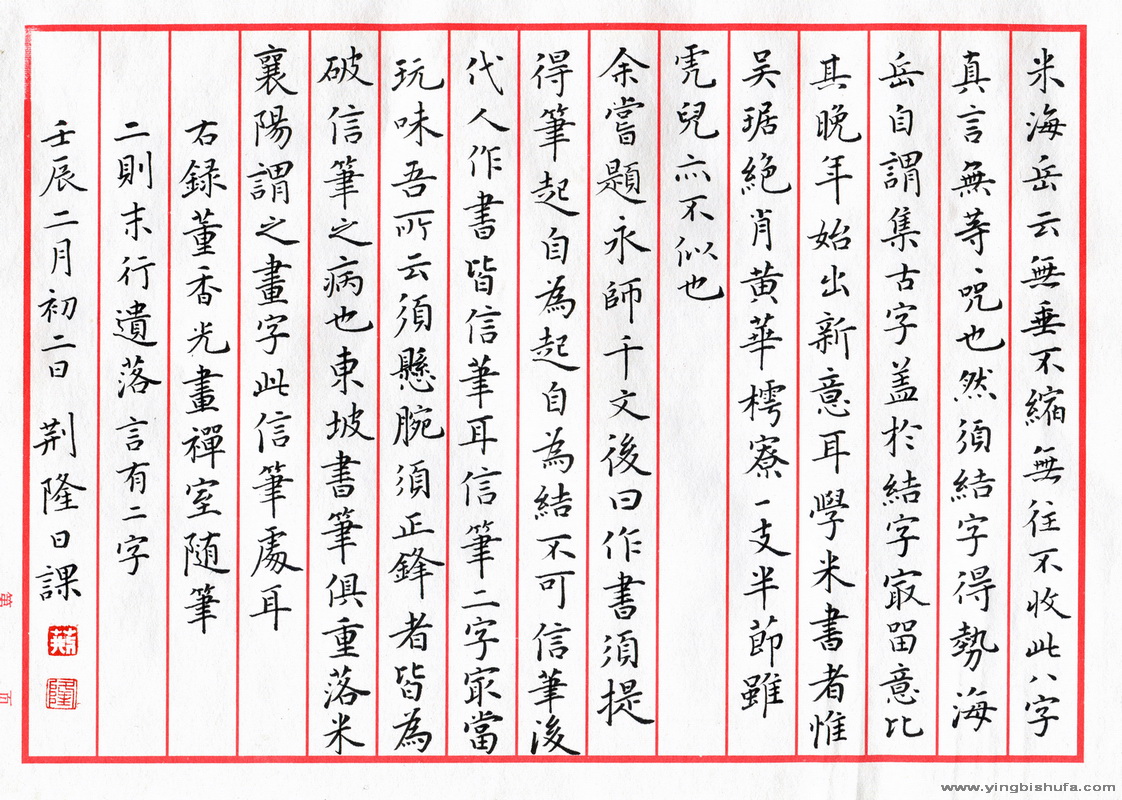 米海岳云無垂不縮無往不收此八字
真言無等々咒也然須結字得勢海
岳自謂集古字盖於結字㝡留意比
其晚年始出新意耳學米書者惟
吴琚絶肖黄華樗寮一支半節雖
虎兒亦不似也
余嘗題永師千文後曰作書須提
得筆起自為起自為結不可信筆後
代人作書皆信筆耳信筆二字㝡當
玩味吾所云須懸腕須正鋒者皆為
破信筆之病也東坡書筆俱重落米
襄陽謂之畫字此信筆處耳
右録董香光畫禪室随筆
二則末行遺落 言有二字
壬辰二月初二日 荆隆日課
荆
隆
第
頁
www.yingbishufa.com